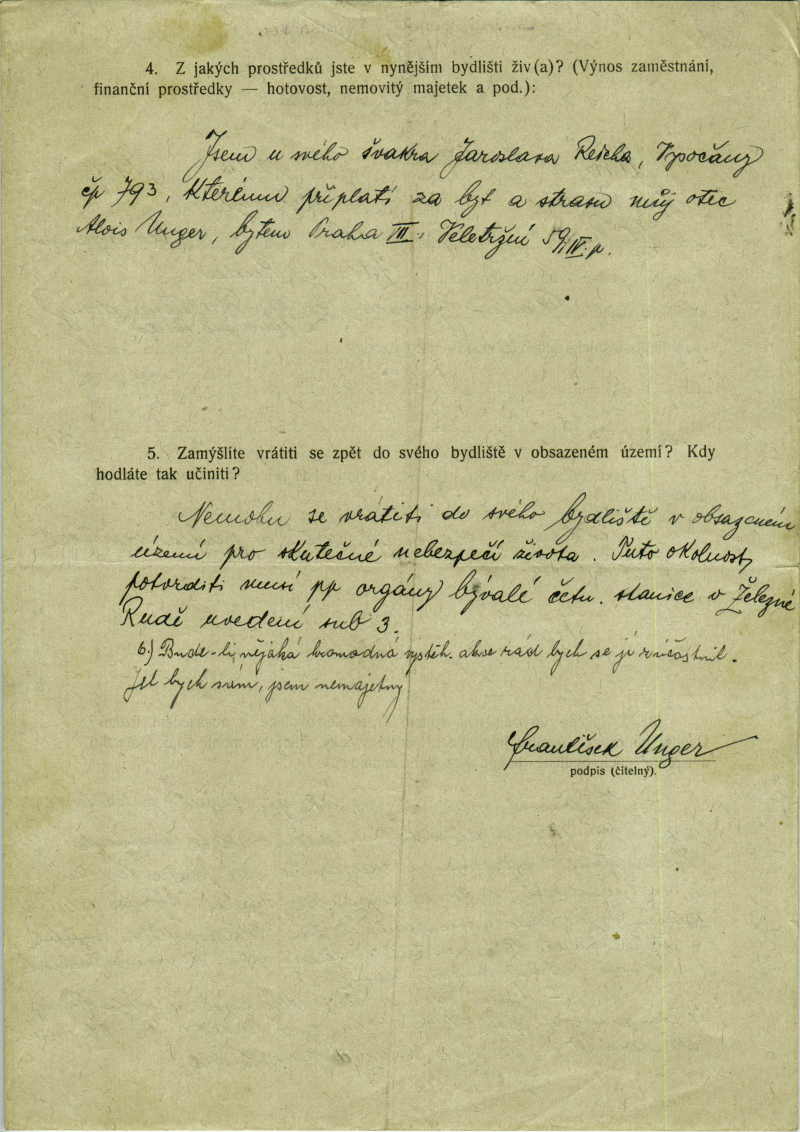 4. Z jakých prostředků jste v nynějším bydlišti živ(a)? (Výnos zaměstnání,
finanční prostředky — hotovost, nemovitý majetek a pod.):
Jsem u svého švakra Jaroslava Reicha, Vysočany
čp 793, kterému připlatí za byt a stravu můj otec
Alois Unger, bytem Praha III. Veletržní 59/IV. p.
5. Zamýšlíte vrátiti se zpět do svého bydliště v obsazeném území? Kdy
hodláte tak učiniti?
Nemohu se vrátiti do svého bydliště v obsazeném
území pro skutečné nebezpečí života. Tuto okolnost
potvrditi musí pp orgány bývalé četn. stanice v Železné
Rudě uvedení sub 3.
6.) Bude-li nějaká hromadná vystěh. akce rád bych se jí zúčastnil.
Jel bych sám, jsem nemajetný
František Unger
podpis (čitelný).